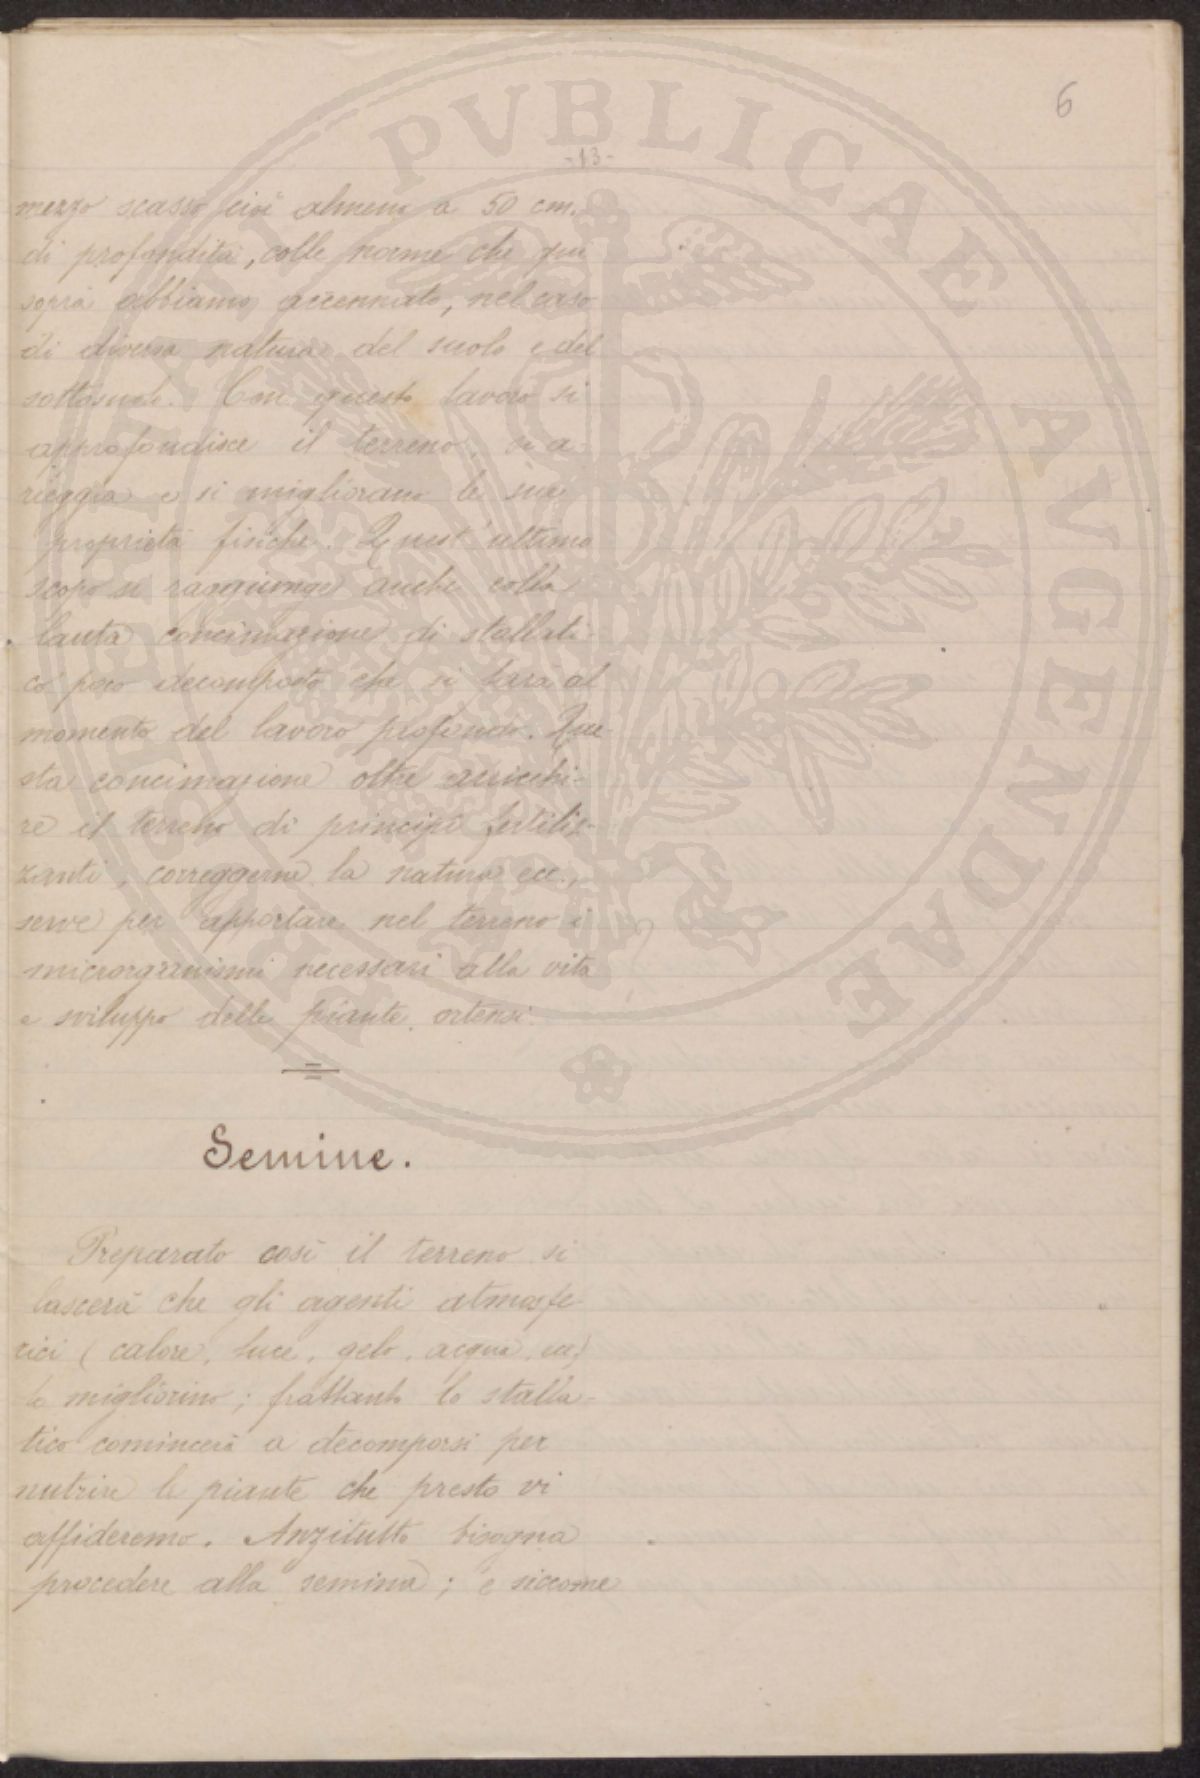 6
-13-
mezzo scasso cioè almeno a 50 cm.
di profondità, colle norme che qui
sopra abbiamo accennato, nel caso
di diversa natura del suolo e del
sottosuolo. Con questo lavoro si
approfondisce il terreno, si a-
rieggia e si migliorano le sue
proprietà fisiche. Quest'ultimo
scopo si raggiunge anche colla
lauta concimazione di stallati-
co poco decomposto che si farà al
momento del lavoro profondo. Que-
sta concimazione oltre arricchi-
re il terreno di principi fertiliz-
zanti, correggerne la natura ecc.,
serve per apportare nel terreno i
microrganismi necessari alla vita
e sviluppo delle piante ortensi.
Semine.
Preparato così il terreno si
lascerà che gli agenti atmosfe-
rici (calore, luce, gelo, acqua, ecc.)
lo migliorino; frattanto lo stalla-
tico comincerà a decomporsi per
nutrire le piante che presto vi
affideremo. Anzitutto bisogna
procedere alla semina; e siccome
PVBLICAE AVGENDAE